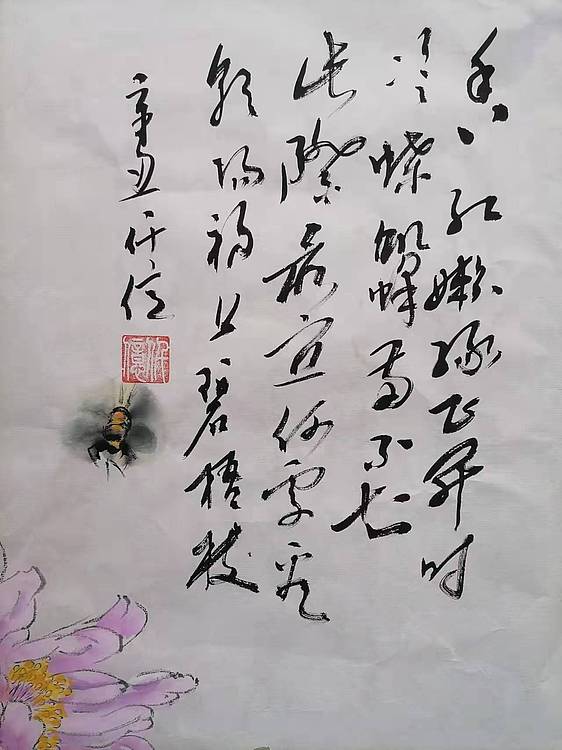 香红嫩绿正开时
冷蝶饥蜂两不知
此际最宜何处看
朝阳初上碧梧枝
辛丑